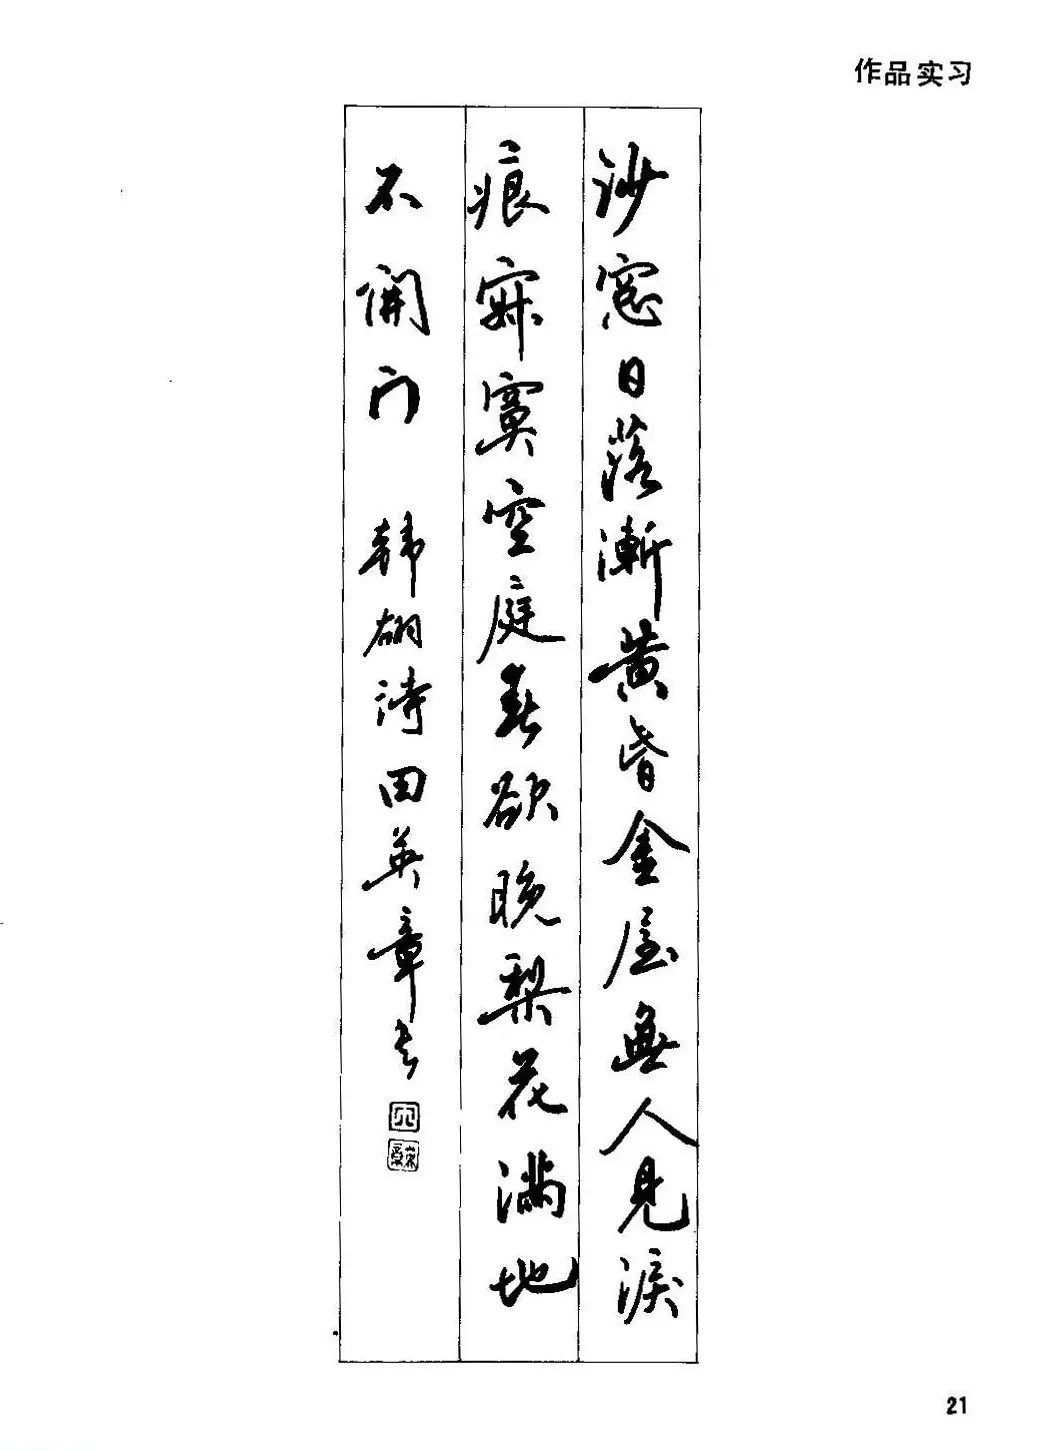 作品实习
沙窓日落漸黄昏金屋無人見淚
痕寂寞空庭春欲晚梨花满地
不開门 韩翃诗田英章书
21